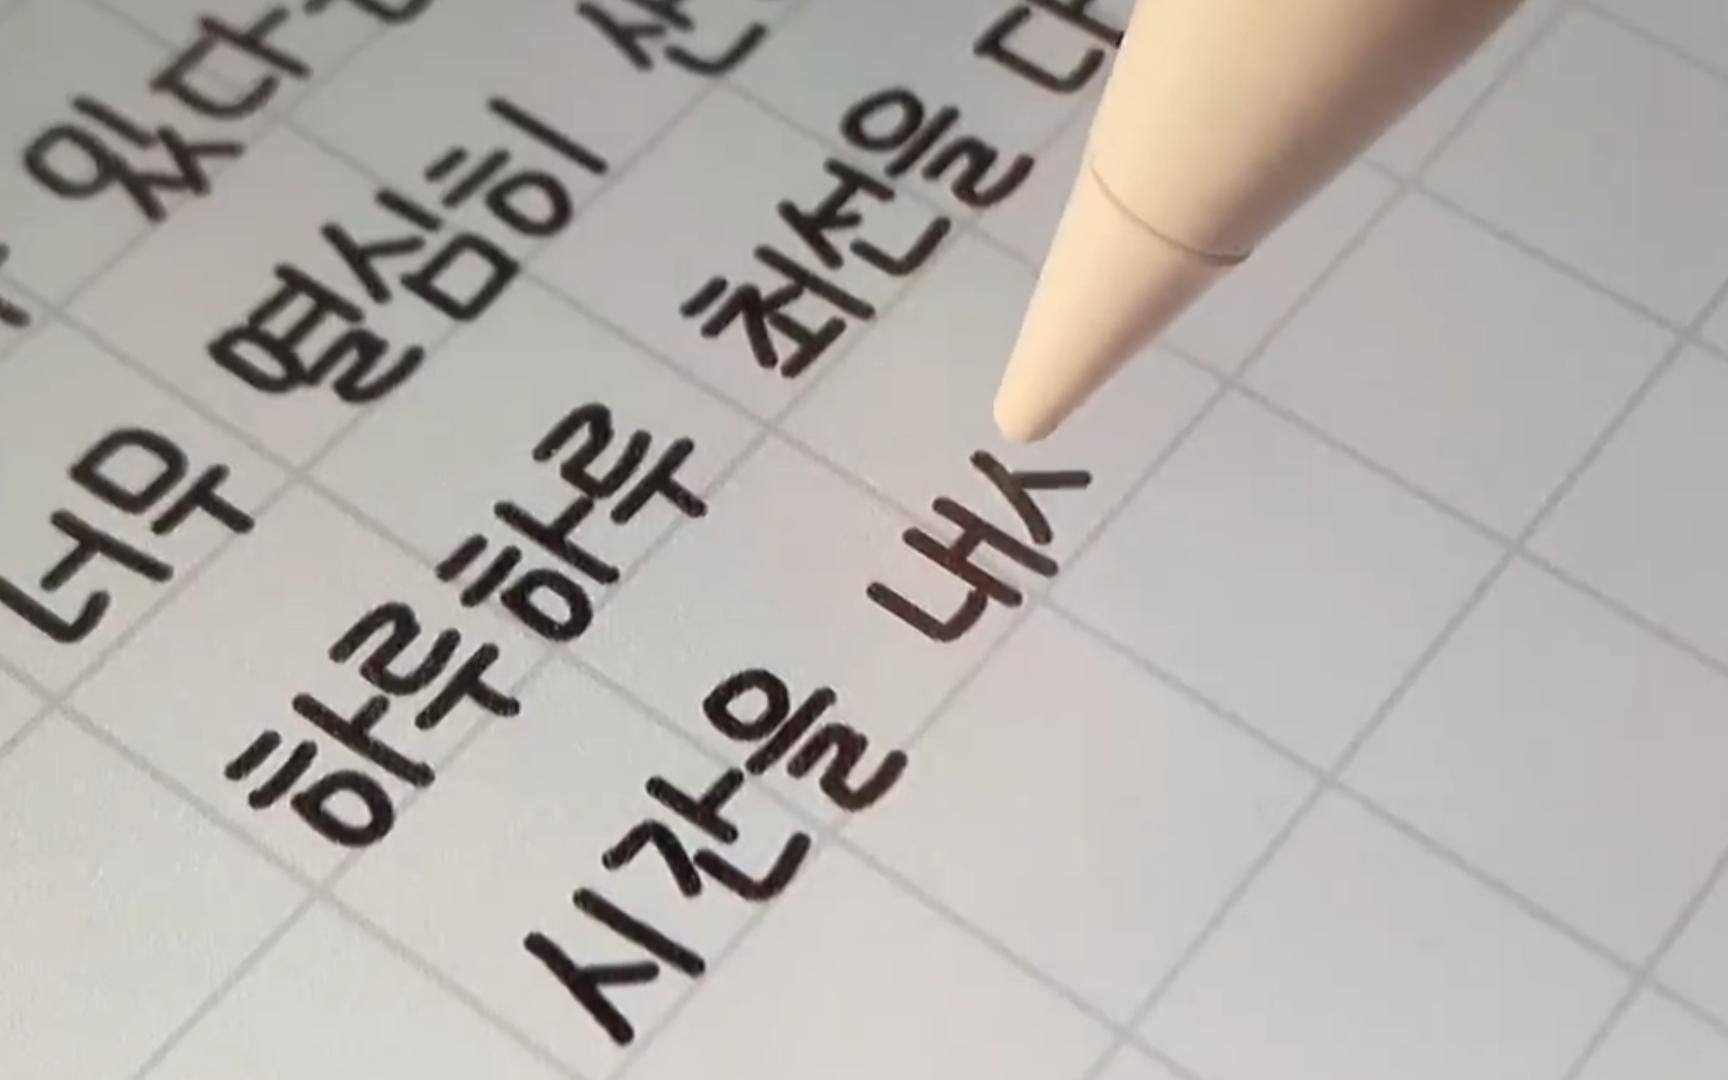 있다
너무 열심히
하루하루 최선을 다
시간을 내ㅅ